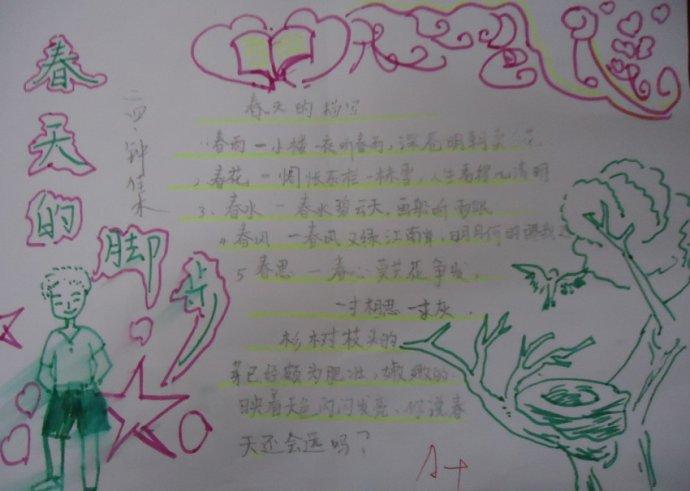 春天的脚步
二四、钟佳
春天的描写
1、春雨 — 小楼一夜听春雨，深巷明朝卖杏花
2、春花 — 惆怅东栏一株雪，人生看得几清明
3、春水 — 春水碧云天，画船听雨眠
4 春风 — 春风又绿江南岸，明月何时照我还
5 春思 — 春心莫共花争发，
一寸相思一寸灰．
杉树枝头的
芽已经颇为肥壮，嫩嫩的．
映着天色闪闪发亮，你说春
天还会远吗？
A+